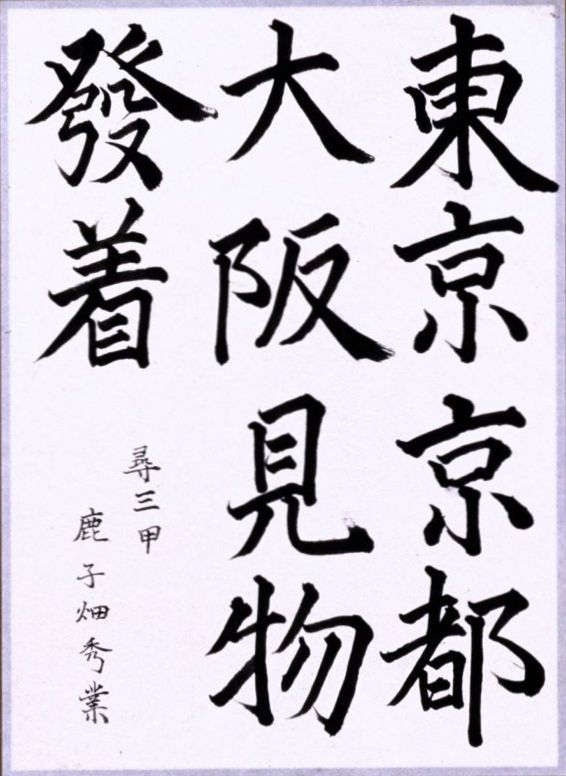 東京京都
大阪見物
發着
尋三甲
鹿子畑秀業